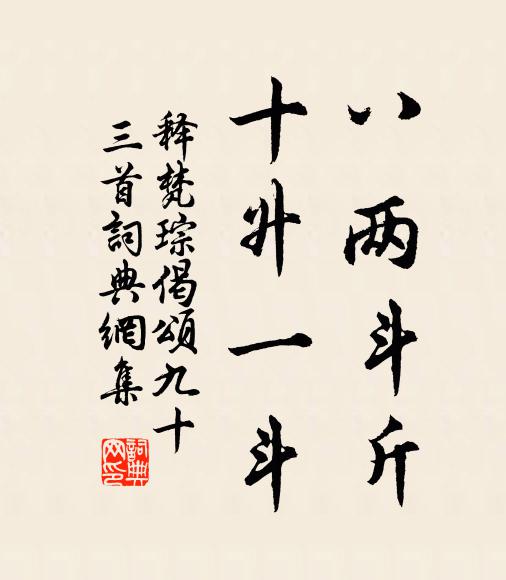 八两斗斤
十升一斗
释梵琮偈頌九十
三首詞典網集
詞典
网印